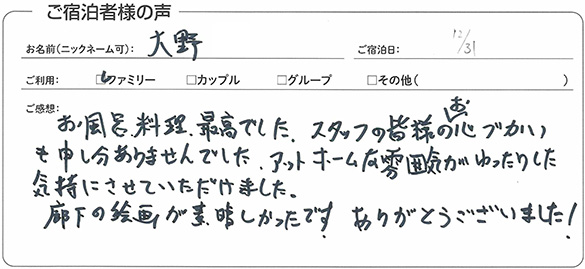 ご宿泊者様の声
お名前(ニックネーム可): 大野 ご宿泊日: 12/31
ご利用: ☑ファミリー □カップル □グループ □その他( )
ご感想:
お風呂、料理、最高でした。スタッフの皆様のお心づかい
も申し分ありませんでした。アットホームな雰囲気がゆったりした
気持にさせていただけました。
廊下の絵画が素晴しかったです! ありがとうございました!